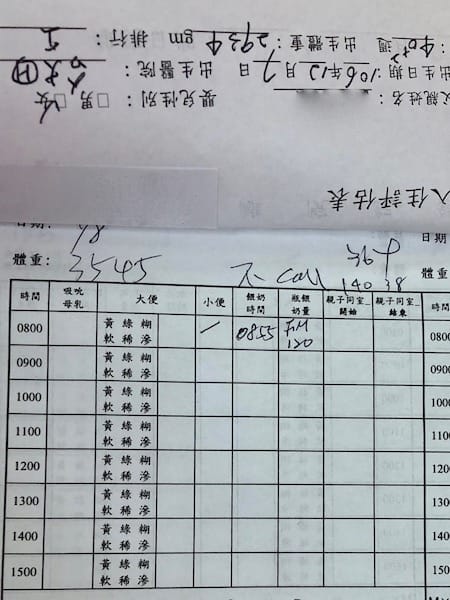 入住評估表
親姓名 嬰兒性別 □男 □女
出生日期：106年12月7日 出生醫院：
週 出生體重：2934 gm 排行：
日期： 日期
體重：3545 不 call 140 38 體重：
時間 吸吮母乳 大便 小便 餵奶時間 瓶餵奶量 親子同室_開始 親子同室_結束 時間
0800 黃 綠 糊 軟 稀 滲 / 0855 120 0800
0900 黃 綠 糊 軟 稀 滲 0900
1000 黃 綠 糊 軟 稀 滲 1000
1100 黃 綠 糊 軟 稀 滲 1100
1200 黃 綠 糊 軟 稀 滲 1200
1300 黃 綠 糊 軟 稀 滲 1300
1400 黃 綠 糊 軟 稀 滲 1400
1500 黃 綠 糊 軟 稀 滲 1500